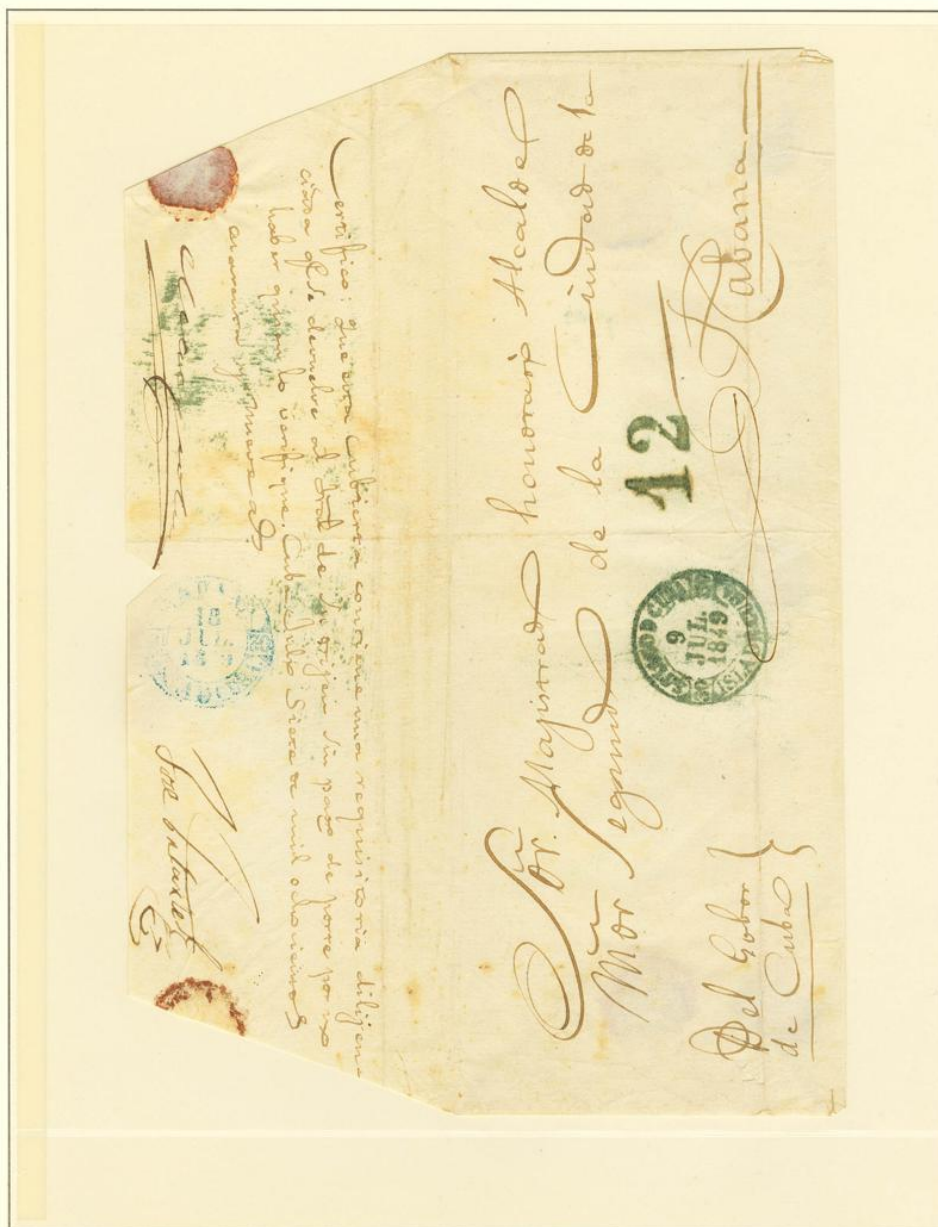 Sor. Magistrado honorario Alcalde
Mor Segundo de la Ciudad de la
Habana
12
SANTIAGO D CUBA
9
JUL
1849
ISLA D CUBA
Del Gobor
de Cuba
Certifico: que esta cubierta contiene una requisitoria dilijen
ciada qe se devuelve al Tral de su orijen sin pago de porte por no
haber quien lo verifique. Cuba Julio Siete de mil ochocientos
cuarenta y nueve